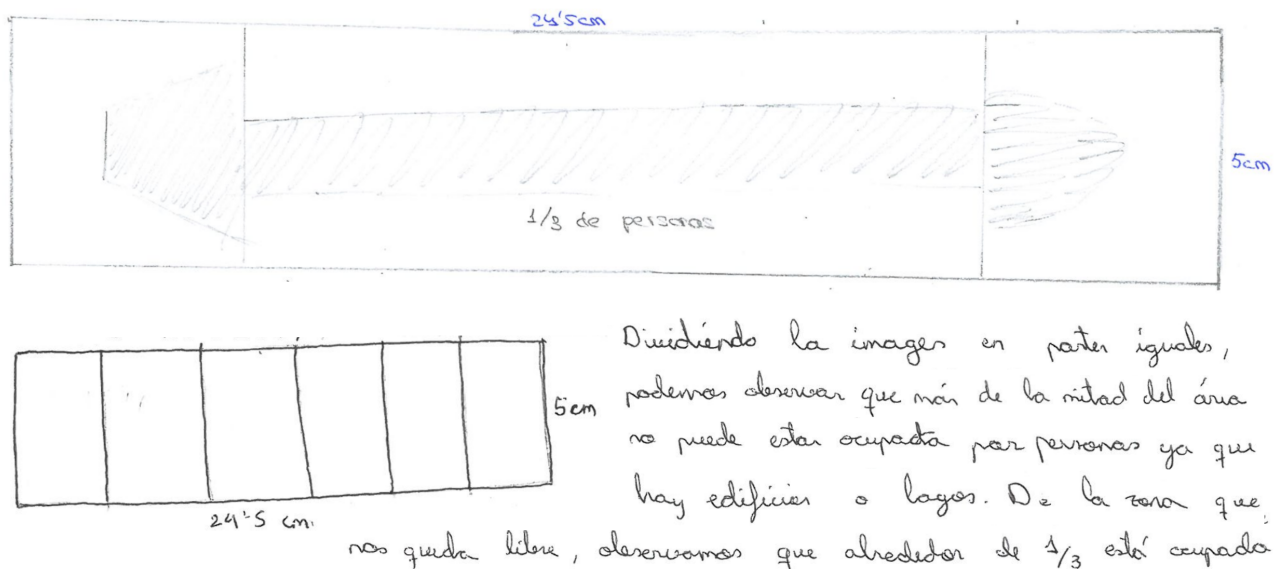 24'5cm
5cm
1/3 de personas
Dividiéndo la images en partes iguales,
5cm podemos observar que más de la mitad del área
no puede estar ocupada por personas ya que
hay edificios o lagos. De la zona que
24'5 cm.
nos queda libre, observamos que alrededor de 1/3 está ocupada